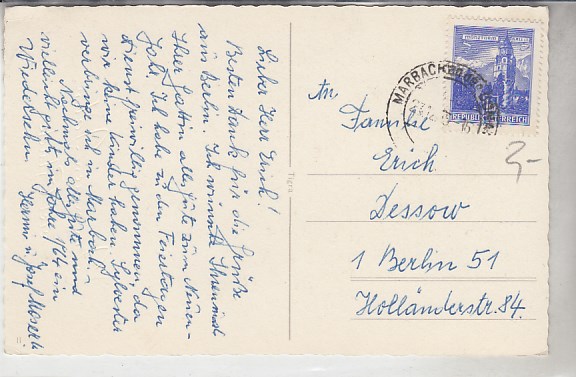 Lieber Herr Erich!
Besten Dank für die Grüße
aus Berlin. Ich wünsche Ihnen und
Ihrer Gattin alles Gute zum Neuen-
Jahr. Ich habe zu den Feiertagen
Dienst freiwillig genommen, da
wir keine Kinder haben. Sylvester
verbringe ich in Marbach.
Nochmals alles Gute und
vielleicht gibt's im Jahre 1964 ein
Wiedersehen.
Hermi u Josef
Tigra
REPUBLIK ÖSTERREICH
MARBACH
An
Familie
Erich
Dessow
1 Berlin 51
Holländerstr. 84.
2-